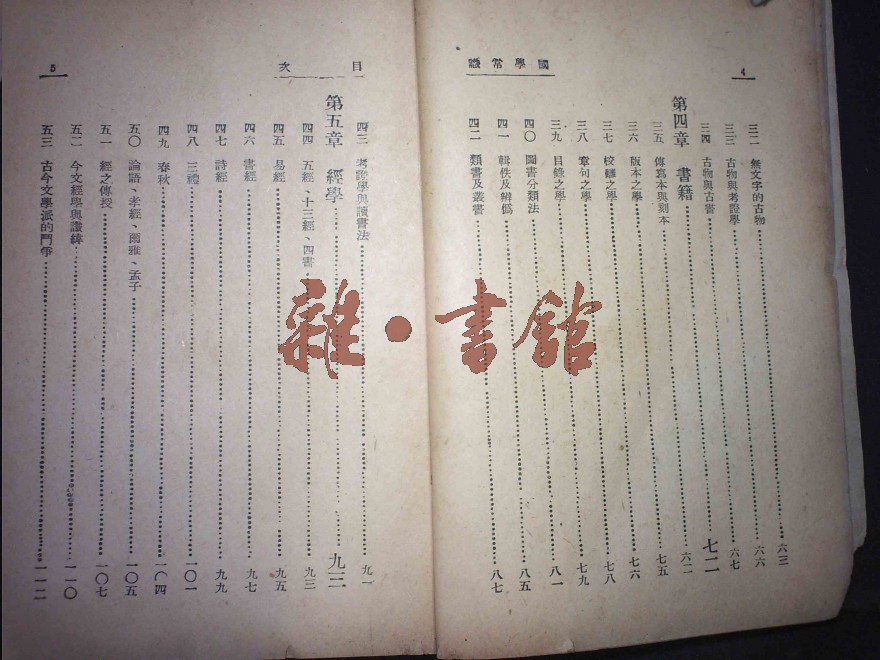 國學常識 4
三二 無文字的古物 六三
三三 古物與考證學 六六
三四 古物與古書 六七
第四章 書籍 七二
三五 傳寫本與刻本 六二
三六 版本之學 七五
三七 校讎之學 七六
三八 章句之學 七八
三九 目錄之學 七九
四〇 圖書分類法 八一
四一 輯佚及辨僞 八五
四二 類書及叢書 八七
目次 5
四三 考證學與讀書法 九一
第五章 經學 九三
四四 五經、十三經、四書 九三
四五 易經 九五
四六 書經 九七
四七 詩經 九九
四八 三禮 一〇一
四九 春秋 一〇四
五〇 論語、孝經、爾雅、孟子 一〇五
五一 經之傳授 一〇七
五二 今文經學與讖緯 一一〇
五三 古今文學派的鬥爭 一一二
雜·書館